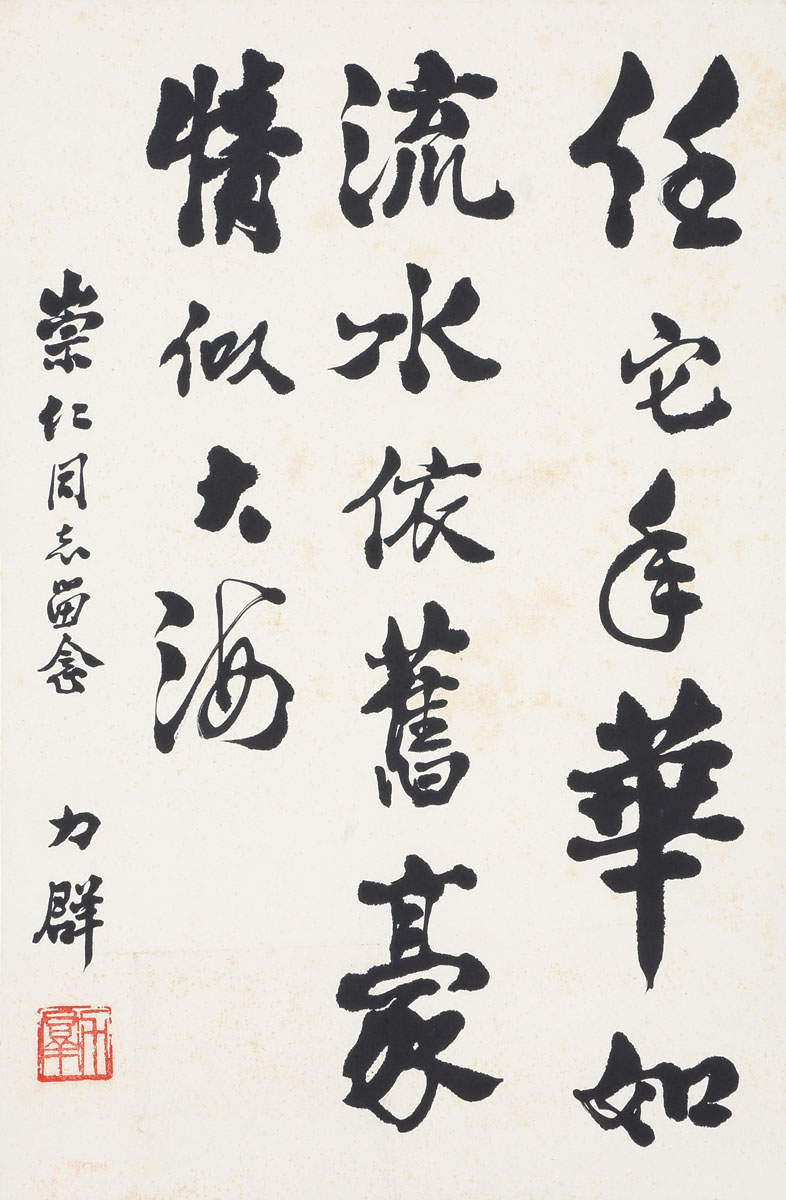 任它年華如
流水依舊豪
情似大海
崇仁同志留念
力群